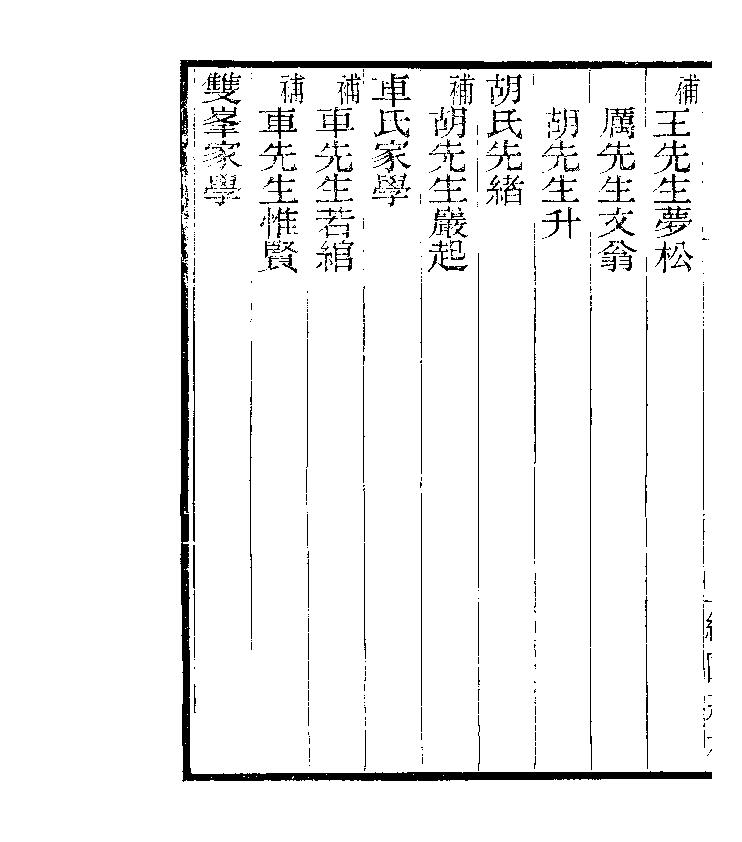 補王先生夢松
厲先生文翁
胡先生升
胡氏先緒
補胡先生巖起
車氏家學
補車先生若綰
補車先生惟賢
雙峯家學